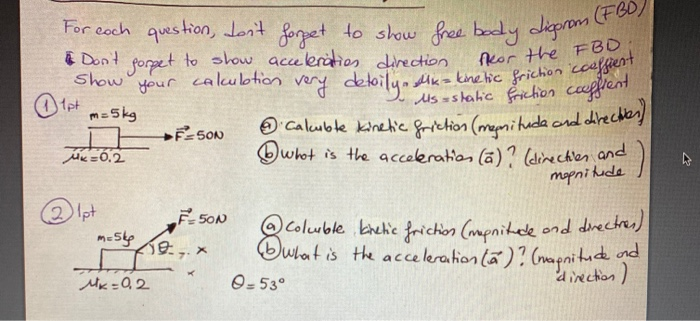 For each question, don't forget to show free body diagram (FBD)
& Don't forget to show acceleration direction near the FBD.
Show your calculation very detaily.
μk = kinetic friction coeffient
μs = static friction coeffient
① 1pt
m=5kg
F⃗=50N
μk=0,2
ⓐ Calculate kinetic friction (magnitude and direction)
ⓑ what is the acceleration (a⃗)? (direction and magnitude)
② 1pt
F⃗=50N
m=5kg
θ
x
μk=0,2
θ=53°
ⓐ Calculate kinetic friction (magnitude and direction)
ⓑ What is the acceleration (a⃗)? (magnitude and direction)